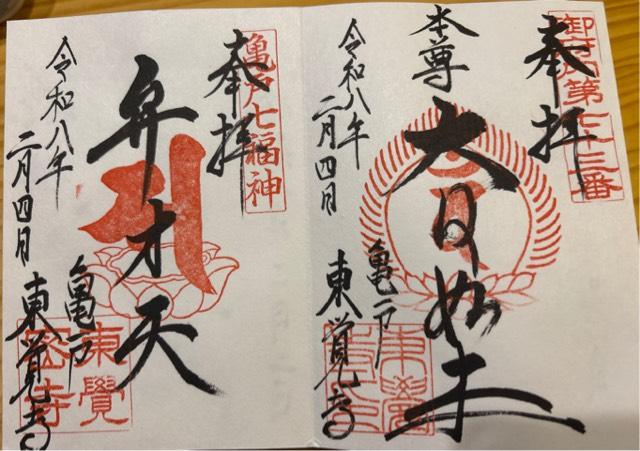 御府内第七十三番
奉拝
本尊
大日如来
令和八年
二月四日
亀戸
東覚寺
亀戸七福神
奉拝
弁才天
令和八年
二月四日
亀戸
東覚寺
東覺
密寺